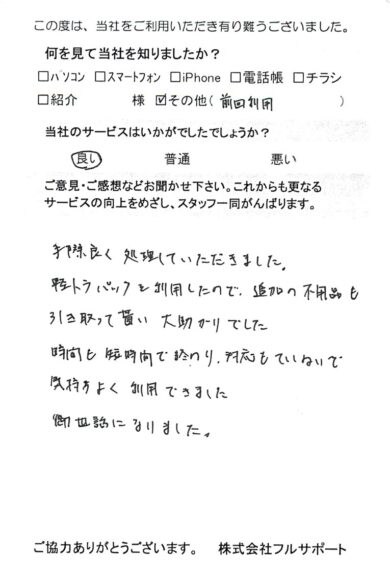 この度は、当社をご利用いただき有り難うございました。
何を見て当社を知りましたか？
□パソコン □スマートフォン □iPhone □電話帳 □チラシ
□紹介 様 ☑その他( 前回利用 )
当社のサービスはいかがでしたでしょうか？
良い 普通 悪い
ご意見・ご感想などお聞かせ下さい。これからも更なる
サービスの向上をめざし、スタッフ一同がんばります。
手際良く処理していただきました。
軽トラパックを利用したので、追加の不用品も
引き取って貰い大助かりでした
時間も短時間で終わり、対応もていねいで
気持ちよく利用できました
御世話になりました。
ご協力ありがとうございます。 株式会社フルサポート